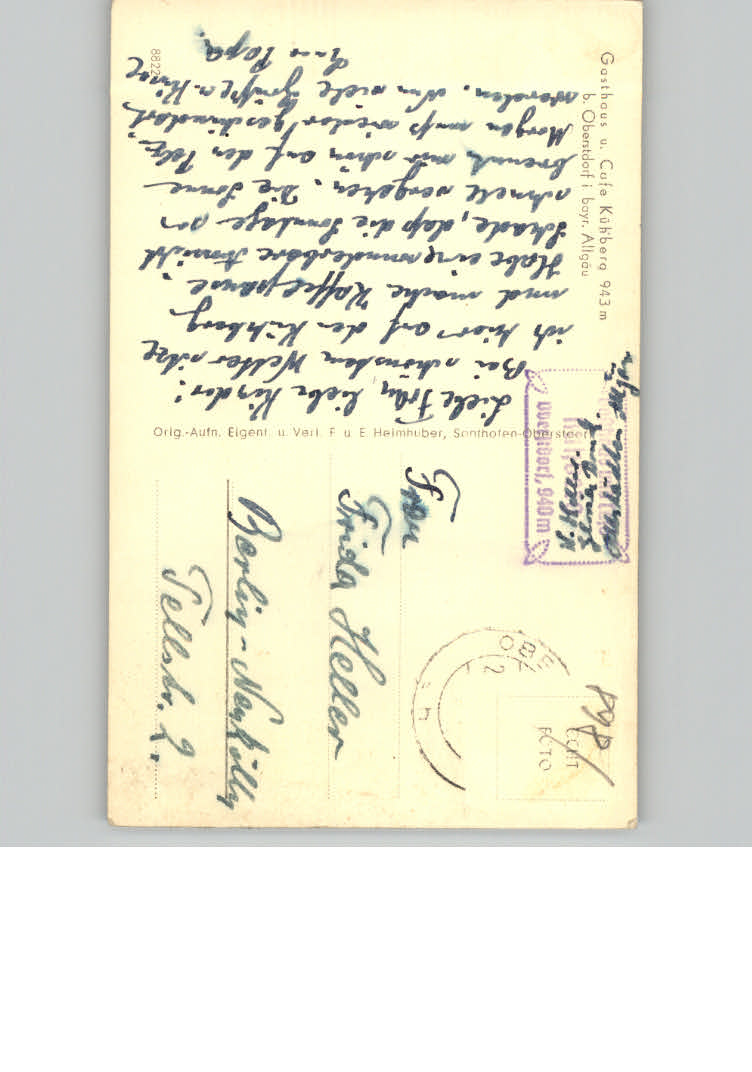 Gasthaus u. Cafe Kühberg 943 m
b. Oberstdorf i. bayr. Allgäu
8822
Liebe Frau, liebe Kinder!
Bei schönstem Wetter sitze
ich hier auf den Kühberg
und mache Kaffeepause.
Habe eine wunderbare Aussicht
Schade, daß die Sonntage so
schnell vergehen. Die Sonne
brennt mir schön auf den Pelz.
Morgen muß wieder geschindert
werden. Nun viele Grüße u. Küsse
Euer Papa.
Orig.-Aufn. Eigent. u. Verl. F. u. E. Heimhuber, Sonthofen-Oberstdorf
Frau
Frida Heller
Berlin-Neukölln
Tellstr. 2.
940 m
ECHT
FOTO
898